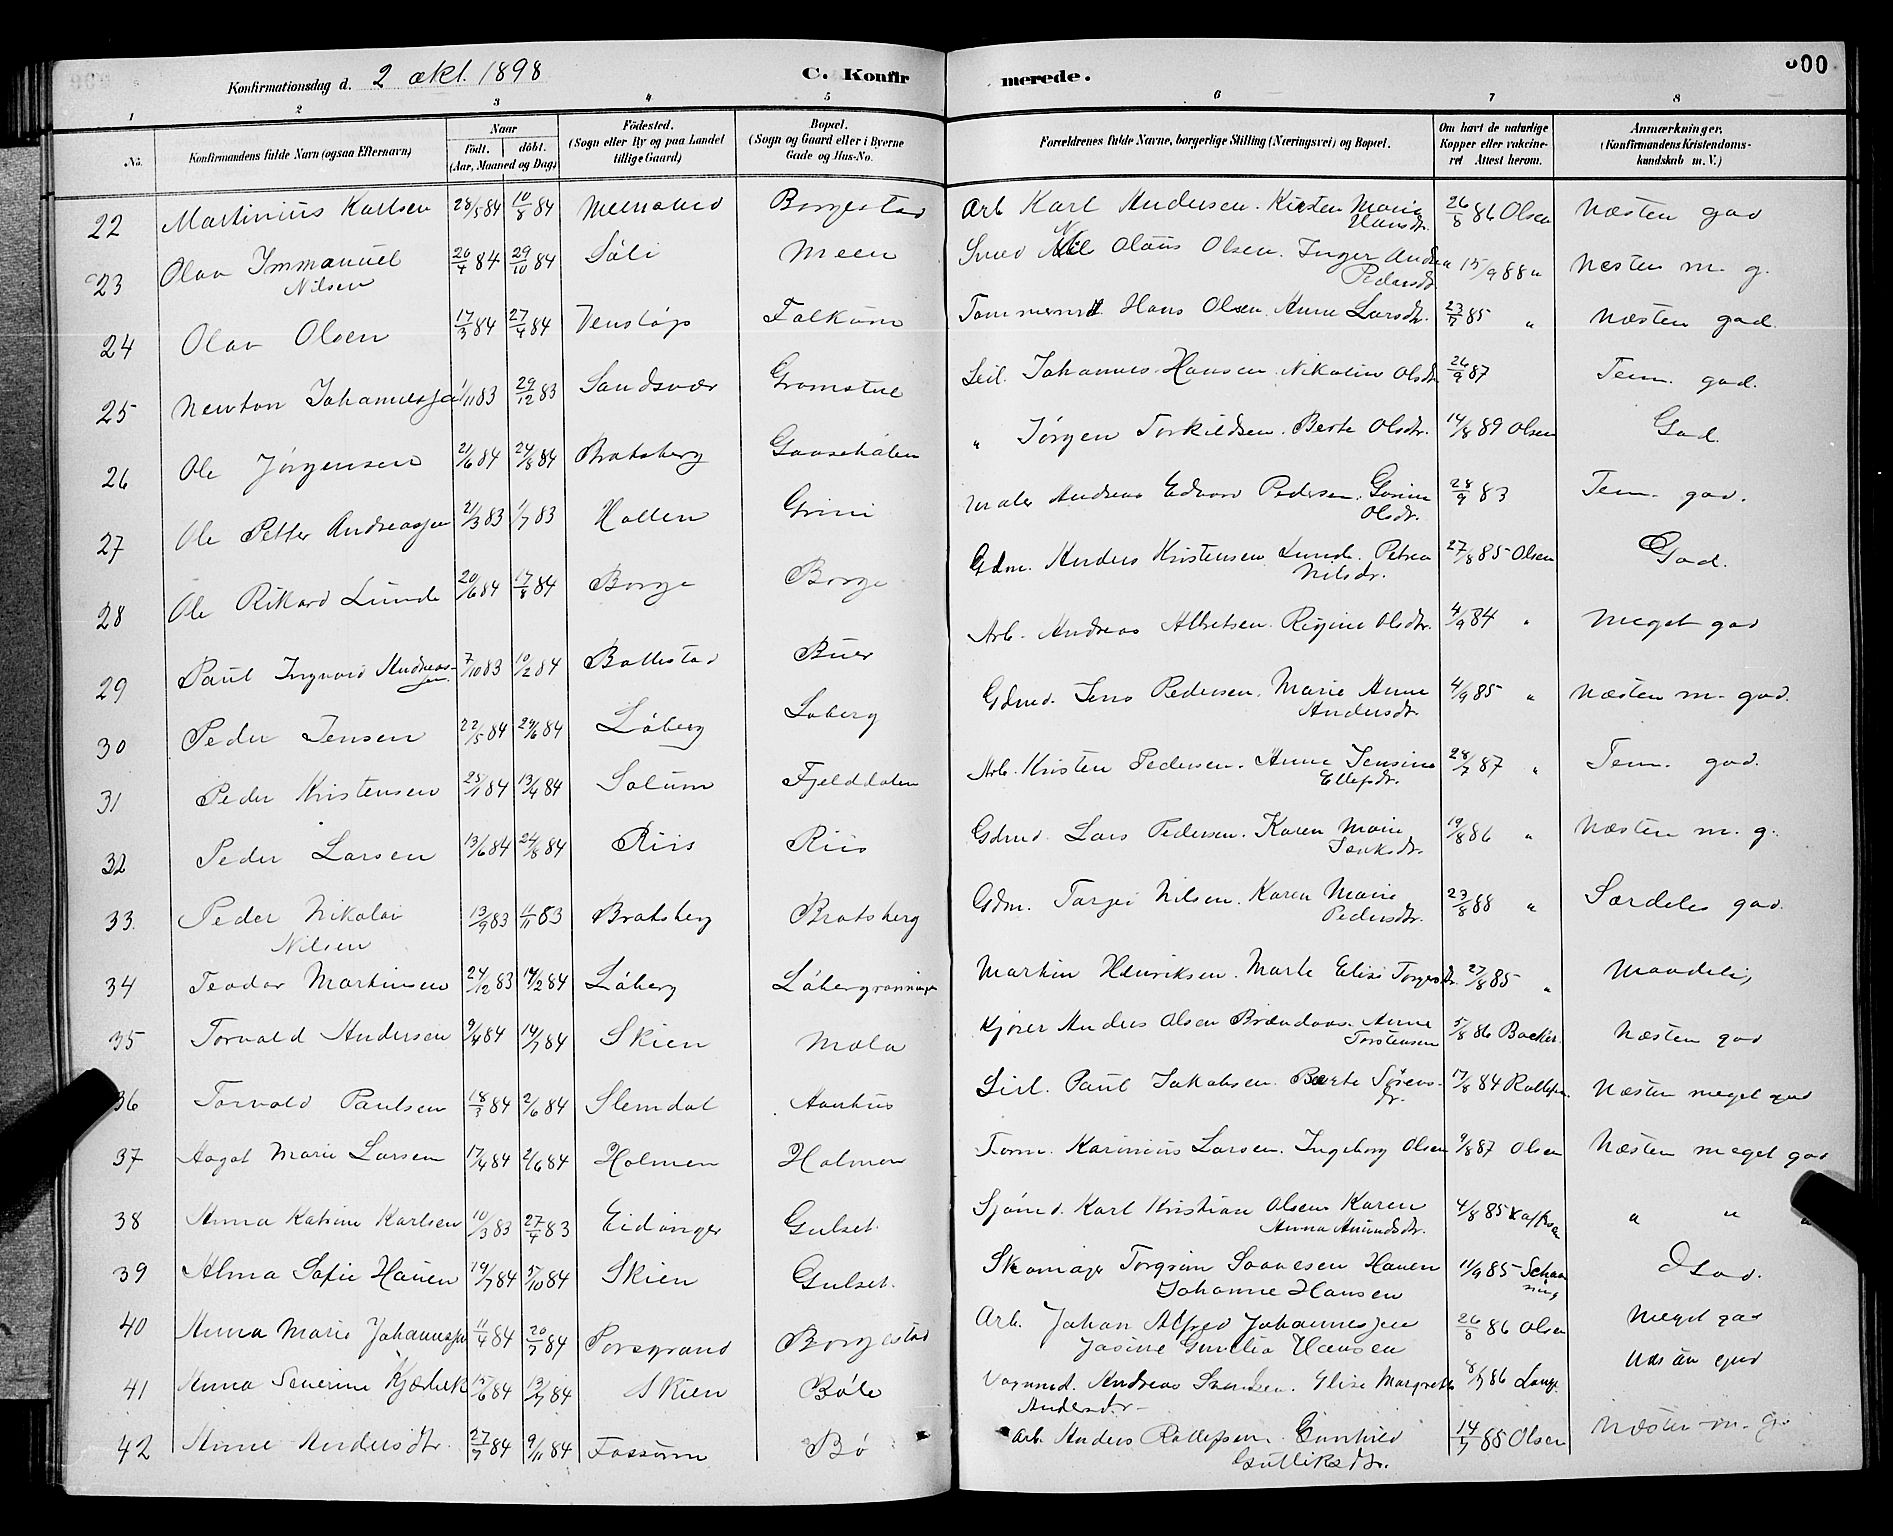 Konfirmationsdag d. 2 okt. 1898 C. Konfir merede. 300
1 2 3 4 5 6 7 8
No. Konfirmandens fulde Navn (ogsaa Efternavn) Naar Födt. döbt. (Aar, Maaned og Dag) Födested. (Sogn eller By og paa Landet tillige Gaard) Bopæl. (Sogn og Gaard eller i Byerne Gade og Hus-No. Forældrenes fulde Navne, borgerlige Stilling (Næringsvei) og Bopæl. Om havt de naturlige Kopper eller vakcineret Attest herom. Anmærkninger. (Konfirmandens Kristendomskundskab m. V.)
22 Martinius Karlsen 28/5 84 10/8 84 Borgestad Arb Karl Andersen. Kirsten Marie Hansdtr. 26/8 86 Olsen Næsten god
23 Olav Immanuel Nilsen 26/4 84 29/10 84 Løli Meen Olaus Olsen. Inger Andrea Pedersdtr 15/9 88 " Næsten m. g.
24 Olav Olsen 17/3 84 27/4 84 Venstøp Falkum Tømmermd. Hans Olsen. Anne Larsdtr. 23/7 85 " Næsten god.
25 Newton Johannessen 1/11 83 29/12 83 Sandsvær Gromstul Seil. Johannes Hansen. Nikoline Olsdtr 26/9 87 Tem. god.
26 Ole Jørgensen 21/6 84 24/8 84 Bratsberg Gaasehølen " Jørgen Torkildsen. Berte Olsdtr. 14/8 89 Olsen God.
27 Ole Petter Andreassen 21/3 83 1/7 83 Hollen Grini Maler Andreas Edvard Pedersen. Gurine Olsdtr. 28/9 83 Tem. god.
28 Ole Rikard Lunde 20/6 84 17/8 84 Borge Borge Gdm. Anders Kristensen Lunde. Petrea Nilsdtr. 27/8 85 Olsen God.
29 Paul Ingvard Andreassen 7/10 83 10/2 84 Bollestad Buer Arb. Andreas Albretsen. Regine Olsdtr. 4/9 84 " Meget god
30 Peder Jensen 22/5 84 29/6 84 Løberg Løberg Gdmd. Jens Pedersen. Marie Anne Andersdtr. 4/9 85 " Næsten m. god.
31 Peder Kristensen 25/1 84 13/4 84 Solum Fjelddalen Arb. Kristen Pedersen. Anne Jensine Ellefsdtr. 28/7 87 " Tem. god.
32 Peder Larsen 13/6 84 24/8 84 Riis Riis Gdmd. Lars Pedersen. Karen Marie Isaksdtr. 19/8 86 " Næsten m. g.
33. Peder Nikolai Nilsen 13/9 83 11/11 83 Bratsberg Bratsberg Gdm. Targei Nilsen. Karen Marie Pedersdtr. 23/8 88 " Særdeles god.
34 Teodor Martinsen 24/12 83 14/2 84 Løberg Løbergrønningen Martin Henriksen. Marte Elise Torgersdtr. 27/8 85 " Maadelig
35 Torvald Andersen 9/4 84 14/7 84 Skien Mæla Kjører Anders Olsen Brændaas. Anne Torstensen 5/8 86 Backer Næsten god
36 Torvald Paulsen 18/3 84 2/6 84 Slemdal Aarhus Seil. Paul Jakobsen. Berte Sørensdtr. 17/8 84 Rollefsen. Næsten meget god
37 Aagot Marie Larsen 17/4 84 2/6 84 Holmen Holmen Tømm. Karinius Larsen. Ingeborg Olsen 9/8 87 Olsen Næsten meget god
38 Anna Katrine Karlsen 10/3 83 27/4 83 Eidanger Gulset. Sjømd. Karl Kristian Olsen Karen Anna Amundsdtr. 4/8 85 " " "
39 Alma Sofie Hauen 19/7 84 5/10 84 Skien Gulset. Skomager Torgrim Hauen Johanne Hansen 11/9 85 Schanning God.
40 Anna Marie Johannessen 11/4 84 20/7 84 Porsgrund Borgestad Arb. Johan Alfred Johannessen Josine Gurelia Hansen 26/8 86 Olsen Meget god
41 Anna Severine Kjærbek 15/6 84 13/7 84 Skien Bøle Vognmd. Andreas Svendsen. Elise Margrethe Andersdtr. 8/7 86 Lange Næsten god
42 Anne Andersdtr. 27/7 84 9/11 84 Fossum Bø Arb. Anders Rollefsen. Gunhild Gulliksdtr. 14/7 85 Olsen Næsten m. g.